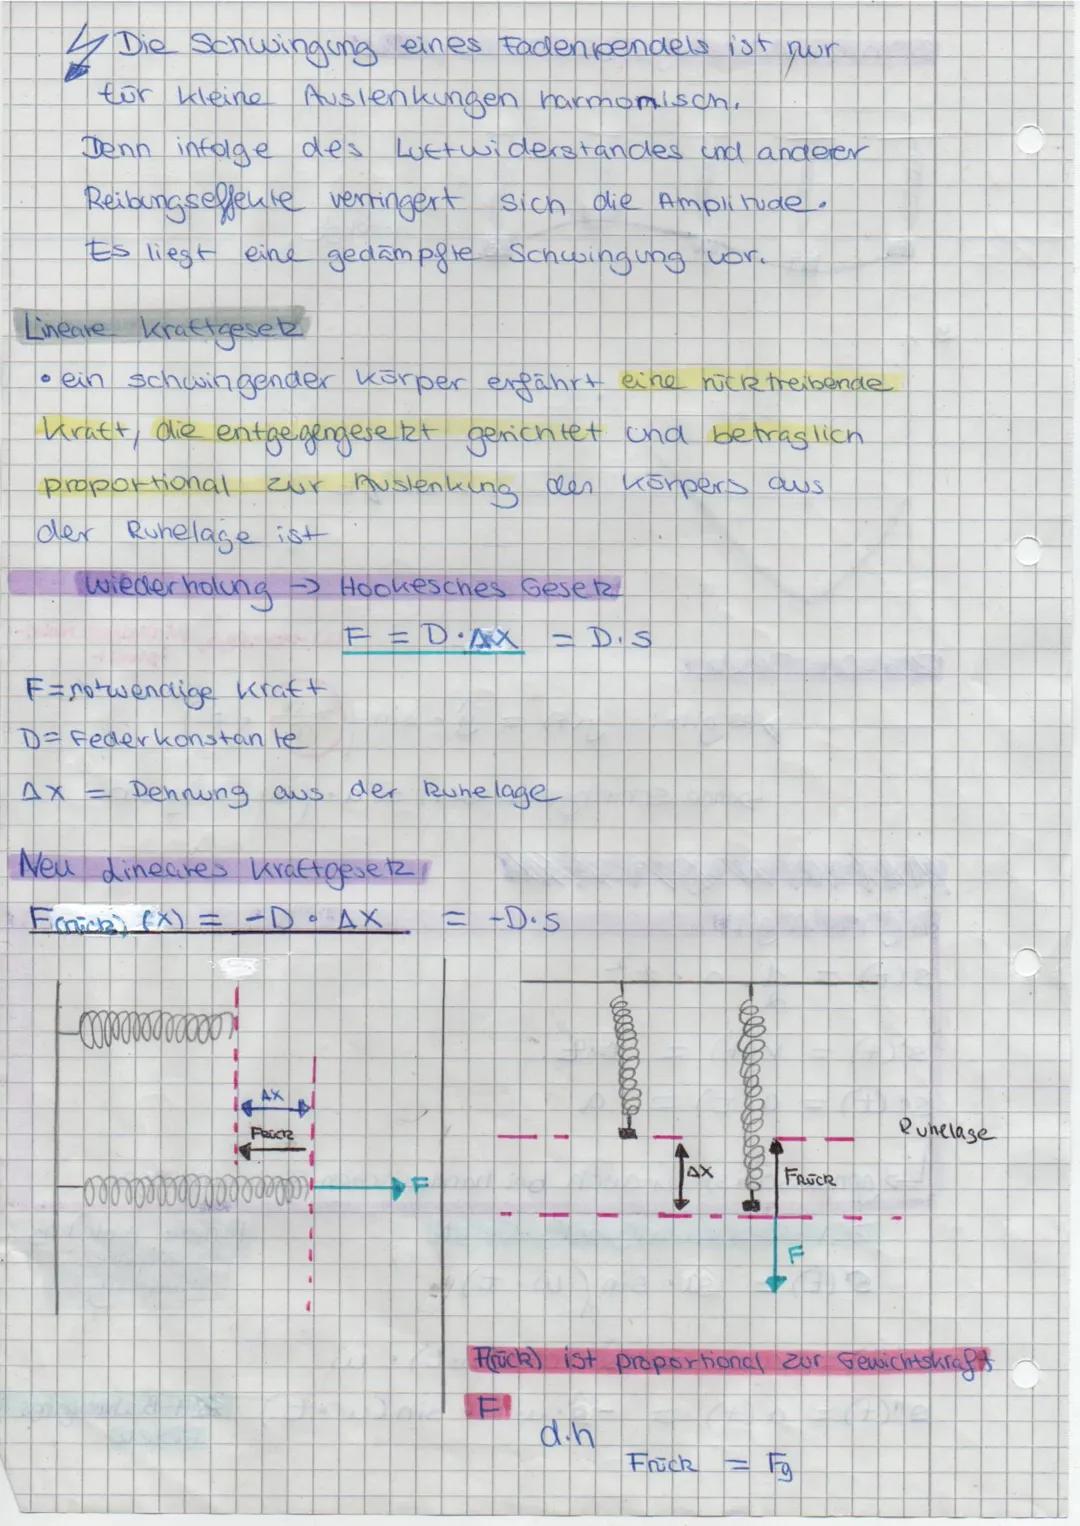 Die Schwingung eines Fadenpendels ist nur
für kleine Auslenkungen harmonisch.
Denn infolge des Luftwiderstandes und anderer
Reibungseffekte verringert sich die Amplitude.
Es liegt eine gedämpfte Schwingung vor.
Lineare Kraftgesetz
• ein schwingender Körper erfährt eine rücktreibende
Kraft, die entgegengesetzt gerichtet und betraglich
proportional zur Auslenkung des Körpers aus
der Ruhelage ist
Wiederholung → Hookesches Gesetz
F = D·ΔX = D·S
F=notwendige Kraft
D=Federkonstante
ΔX = Dehnung aus der Ruhelage
Neu Lineares Kraftgesetz
F(rück) (X) = -D · ΔX = -D·S
ΔX
Frück
F
Ruhelage
ΔX
Frück
F
F(rück) ist proportional zur Gewichtskraft
F
d.h
Frück = Fg